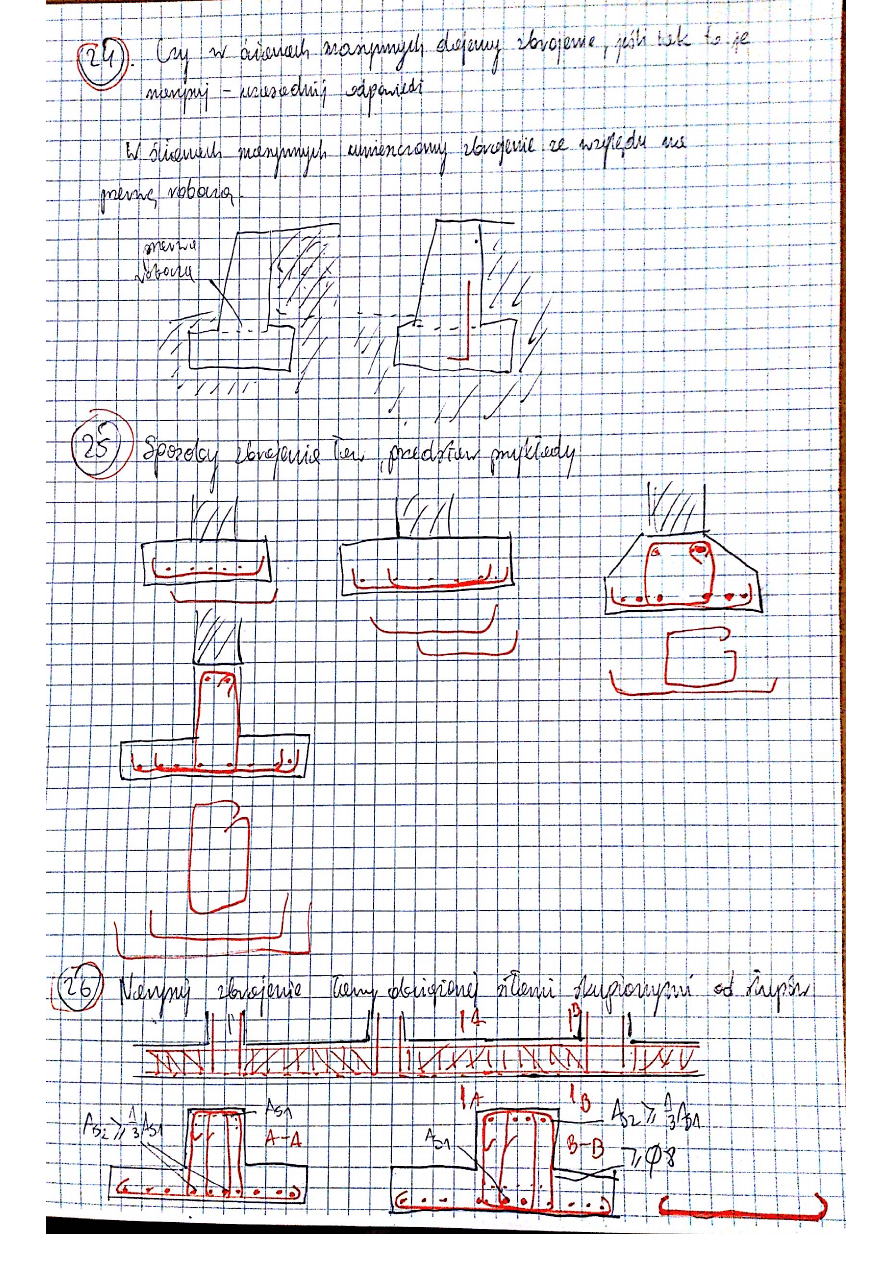 24. Czy w ścianach masywnych dajemy zbrojenie, jeśli tak to je
narysuj - uzasadnij odpowiedź
W ścianach masywnych umieszczamy zbrojenie ze względu na
przerwę roboczą.
przerwa
robocza
25 Sposoby zbrojenia ław, przedstaw przykłady
26 Narysuj zbrojenie ławy obciążonej siłami skupionymi od słupów
A B
A B
As2 ≥ 1/3 As1 As1 A-A
As1 B-B As2 ≥ 1/3 As1
≥ φ8